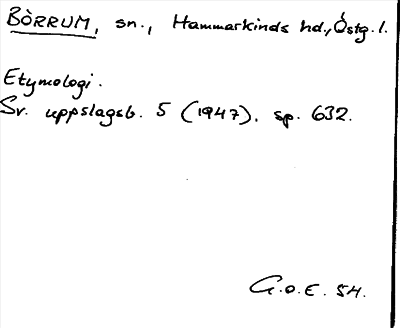 BÖRRUM, sn., Hammarkinds hd., Östg.l.
Etymologi.
Sv. uppslagsb. 5 (1947), sp. 632.
G.O.E. SH.